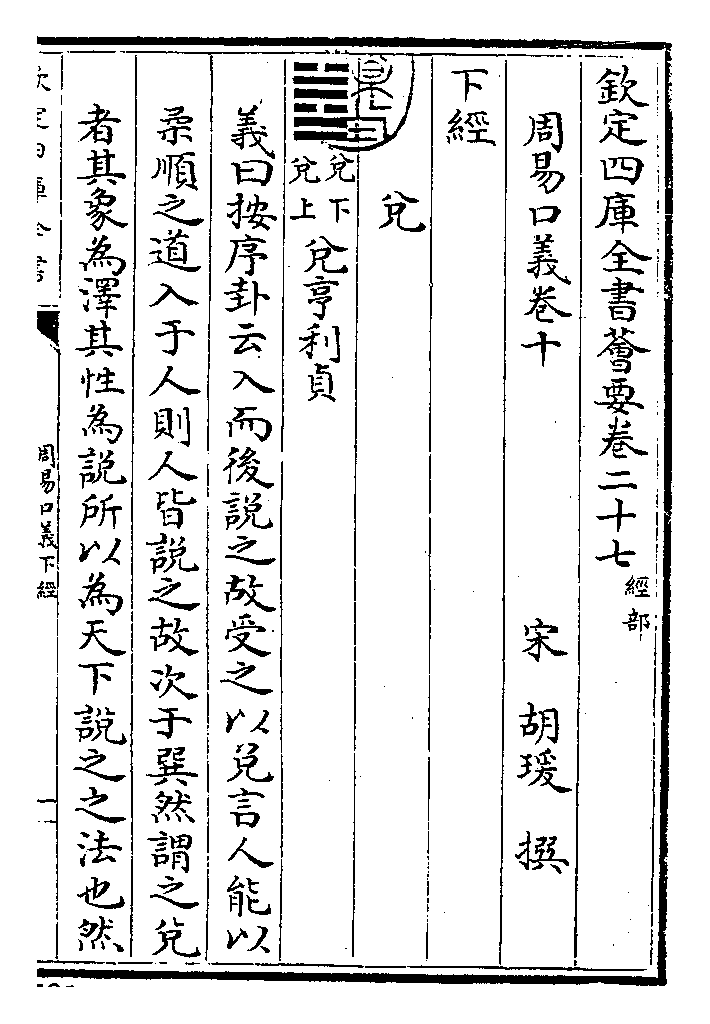 欽定四庫全書薈要卷二十七經部
周易口義卷十 宋 胡瑗 撰
下經
兌
兌下
兌上
兌亨利貞
義曰按序卦云入而後說之故受之以兌言人能以
柔順之道入于人則人皆說之故次于巽然謂之兌
者其象為澤其性為說所以為天下說之之法也然
欽定四庫全書
周易口義下經
一